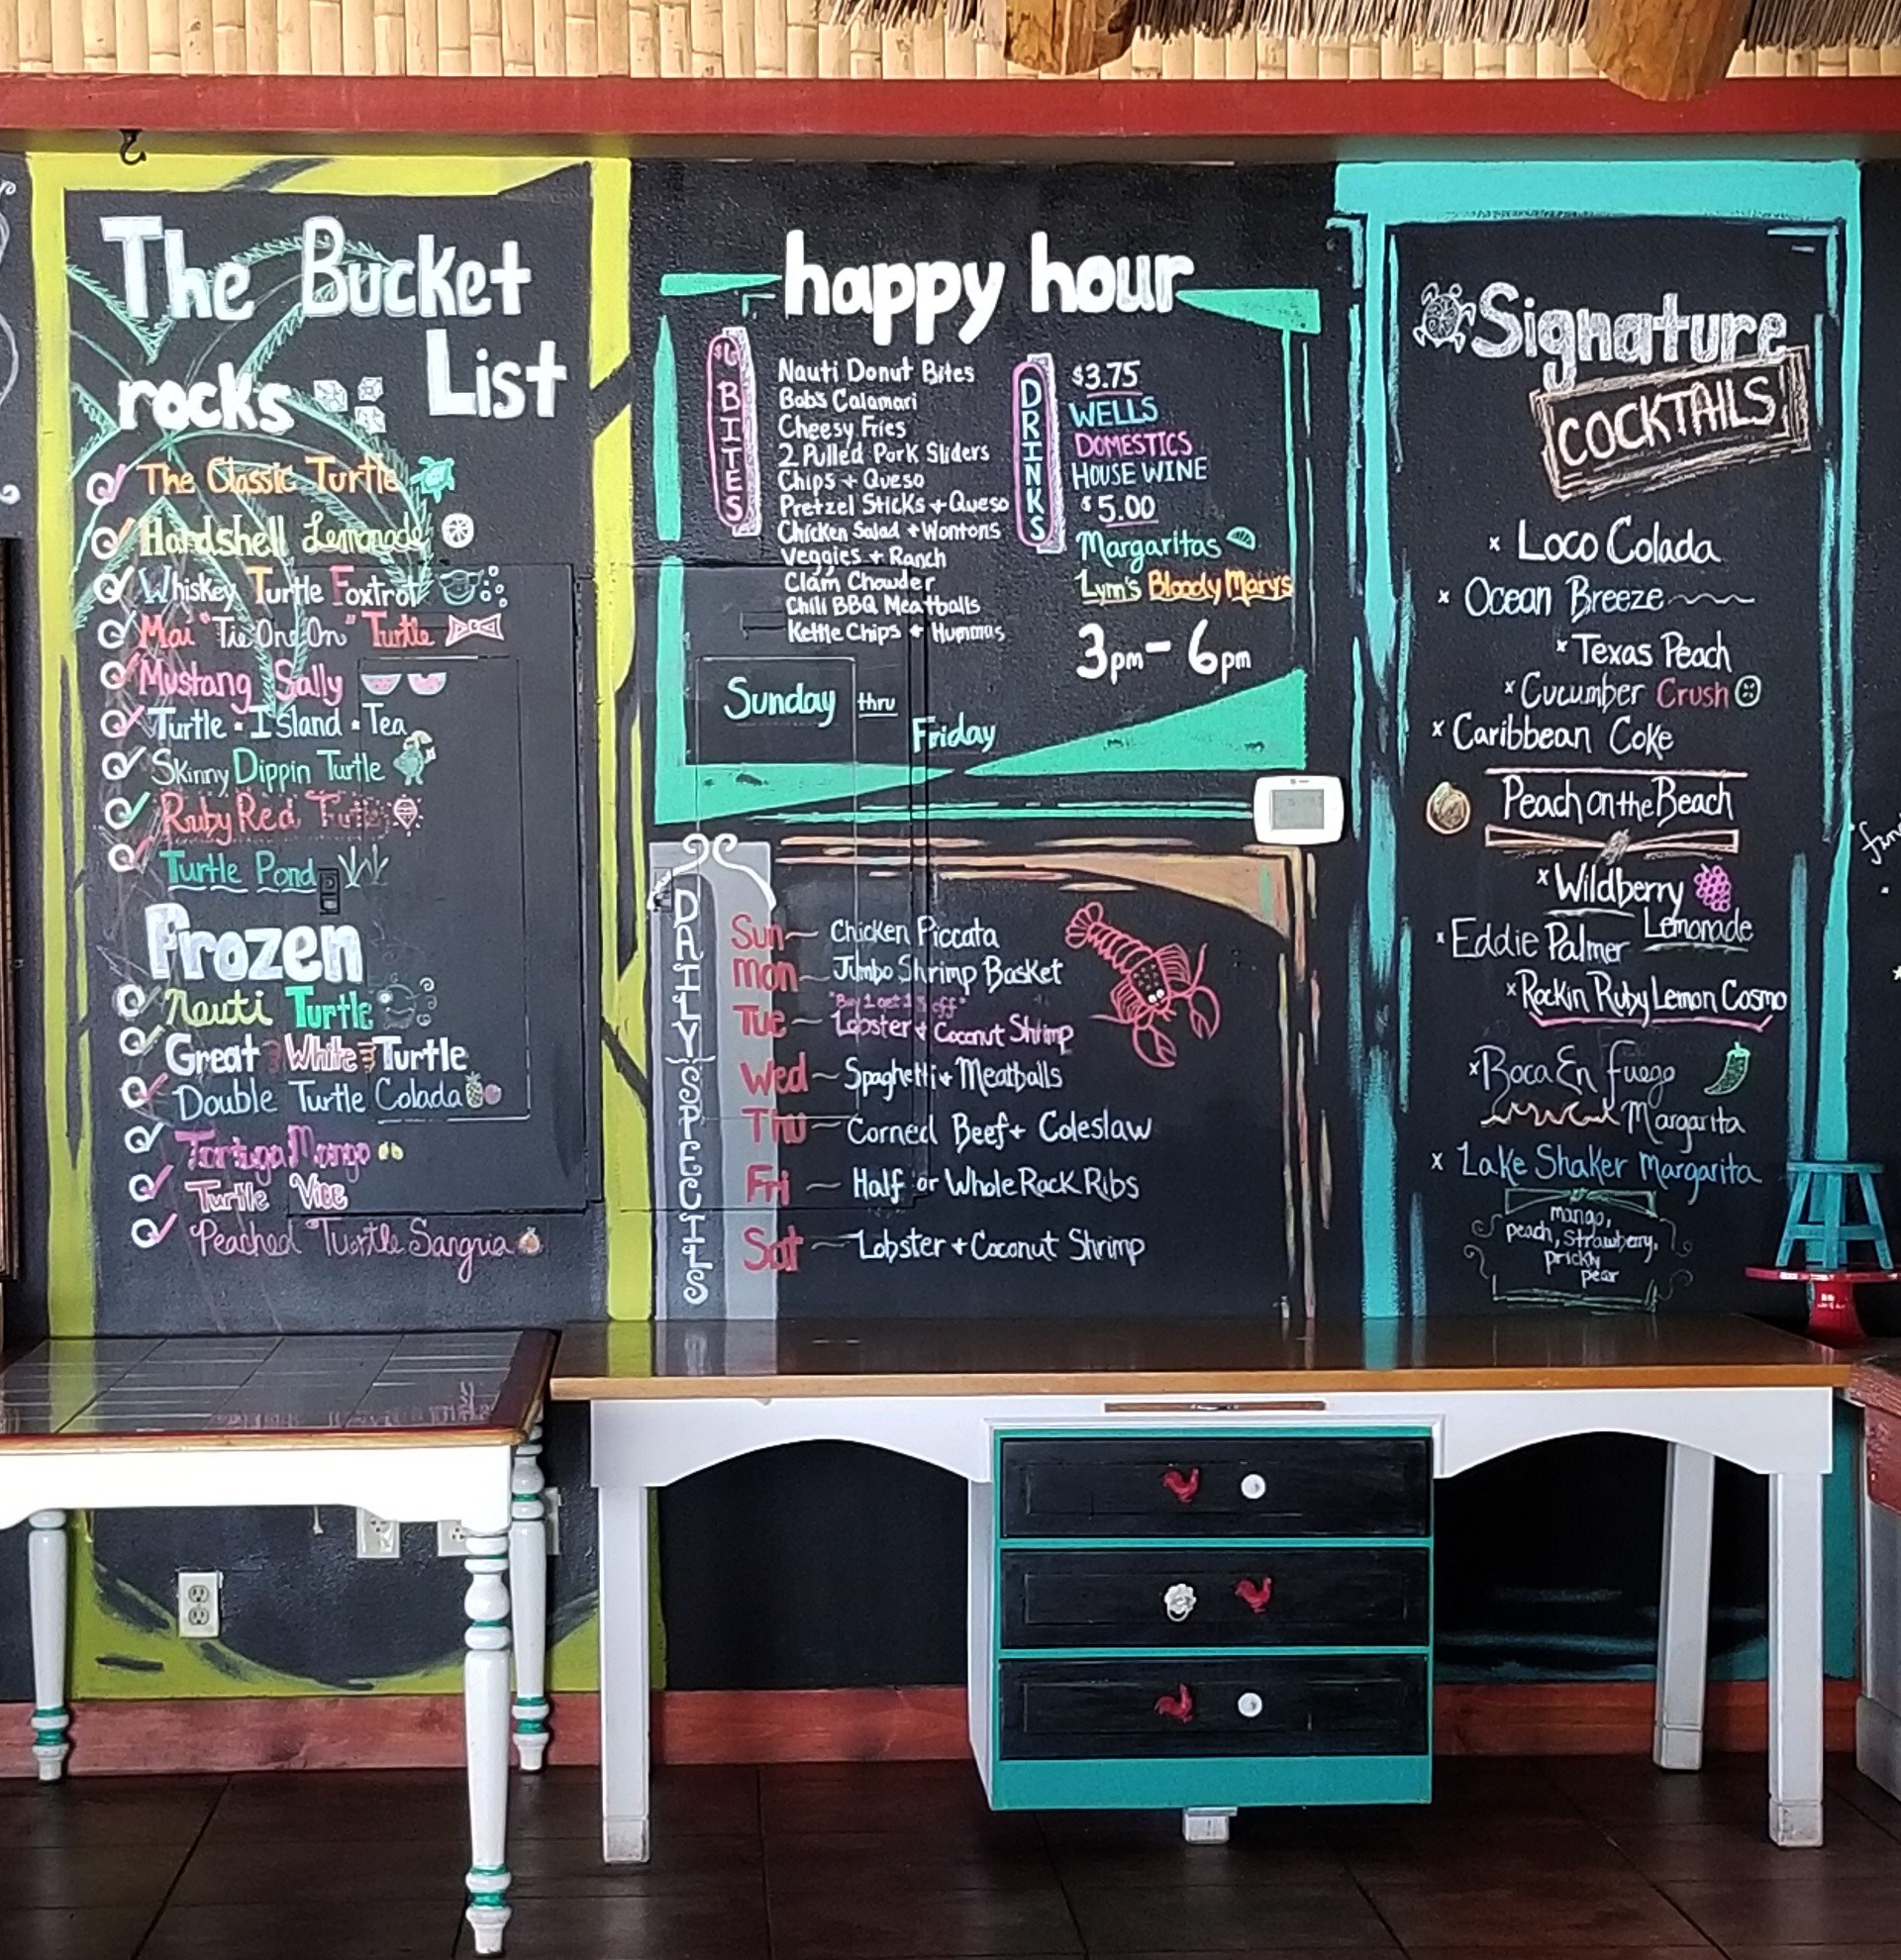 The Bucket
List
rocks
The Classic Turtle
Hardshell Lemonade
Whiskey Turtle Foxtrot
Mai "Tie One On" Turtle
Mustang Sally
Turtle • Island • Tea
Skinny Dippin Turtle
Ruby Red Turtle
Turtle Pond
Frozen
Nauti Turtle
Great White Turtle
Double Turtle Colada
Tortuga Mango
Turtle Vice
Peached Turtle Sangria
happy hour
$6 BITES
Nauti Donut Bites
Bob's Calamari
Cheesy Fries
2 Pulled Pork Sliders
Chips + Queso
Pretzel Sticks + Queso
Chicken Salad + Wontons
Veggies + Ranch
Clam Chowder
Chili BBQ Meatballs
Kettle Chips + Hummas
DRINKS
$3.75
WELLS
DOMESTICS
HOUSE WINE
$5.00
Margaritas
Lynn's Bloody Mary's
3pm - 6pm
Sunday thru
Friday
DAILY SPECIALS
Sun ~ Chicken Piccata
Mon ~ Jumbo Shrimp Basket
"Buy 1 get 1 off"
Tue ~ Lobster + Coconut Shrimp
Wed ~ Spaghetti + Meatballs
Thu ~ Corned Beef + Coleslaw
Fri ~ Half or Whole Rack Ribs
Sat ~ Lobster + Coconut Shrimp
Signature
COCKTAILS
x Loco Colada
x Ocean Breeze
x Texas Peach
x Cucumber Crush
x Caribbean Coke
Peach on the Beach
x Wildberry
Lemonade
x Eddie Palmer
x Rockin Ruby Lemon Cosmo
x Boca En Fuego
Margarita
x Lake Shaker Margarita
mango,
peach, strawberry,
prickly
pear